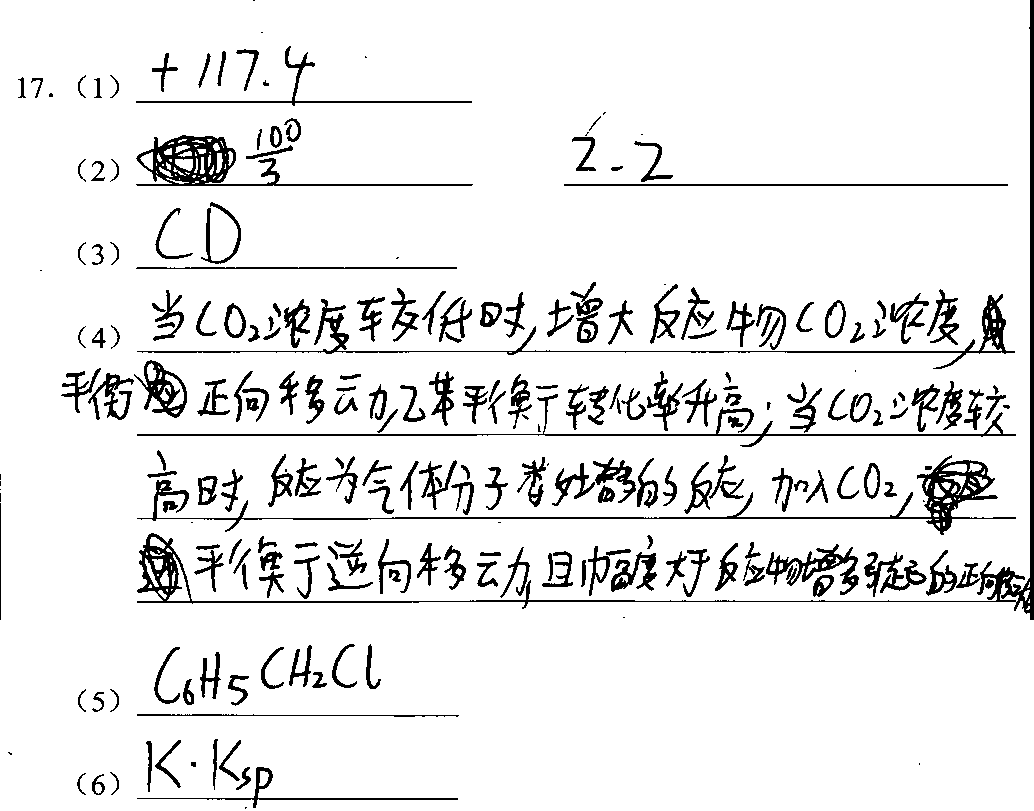 17. (1) +117.4
(2) 100/3 2.2
(3) CD
(4) 当CO₂浓度较低时,增大反应物CO₂浓度,
平衡正向移动,乙苯平衡转化率升高;当CO₂浓度较
高时,反应为气体分子数增多的反应,加入CO₂,
平衡逆向移动,且幅度大于反应物增多引起的正向移动
(5) C₆H₅CH₂Cl
(6) K·Ksp